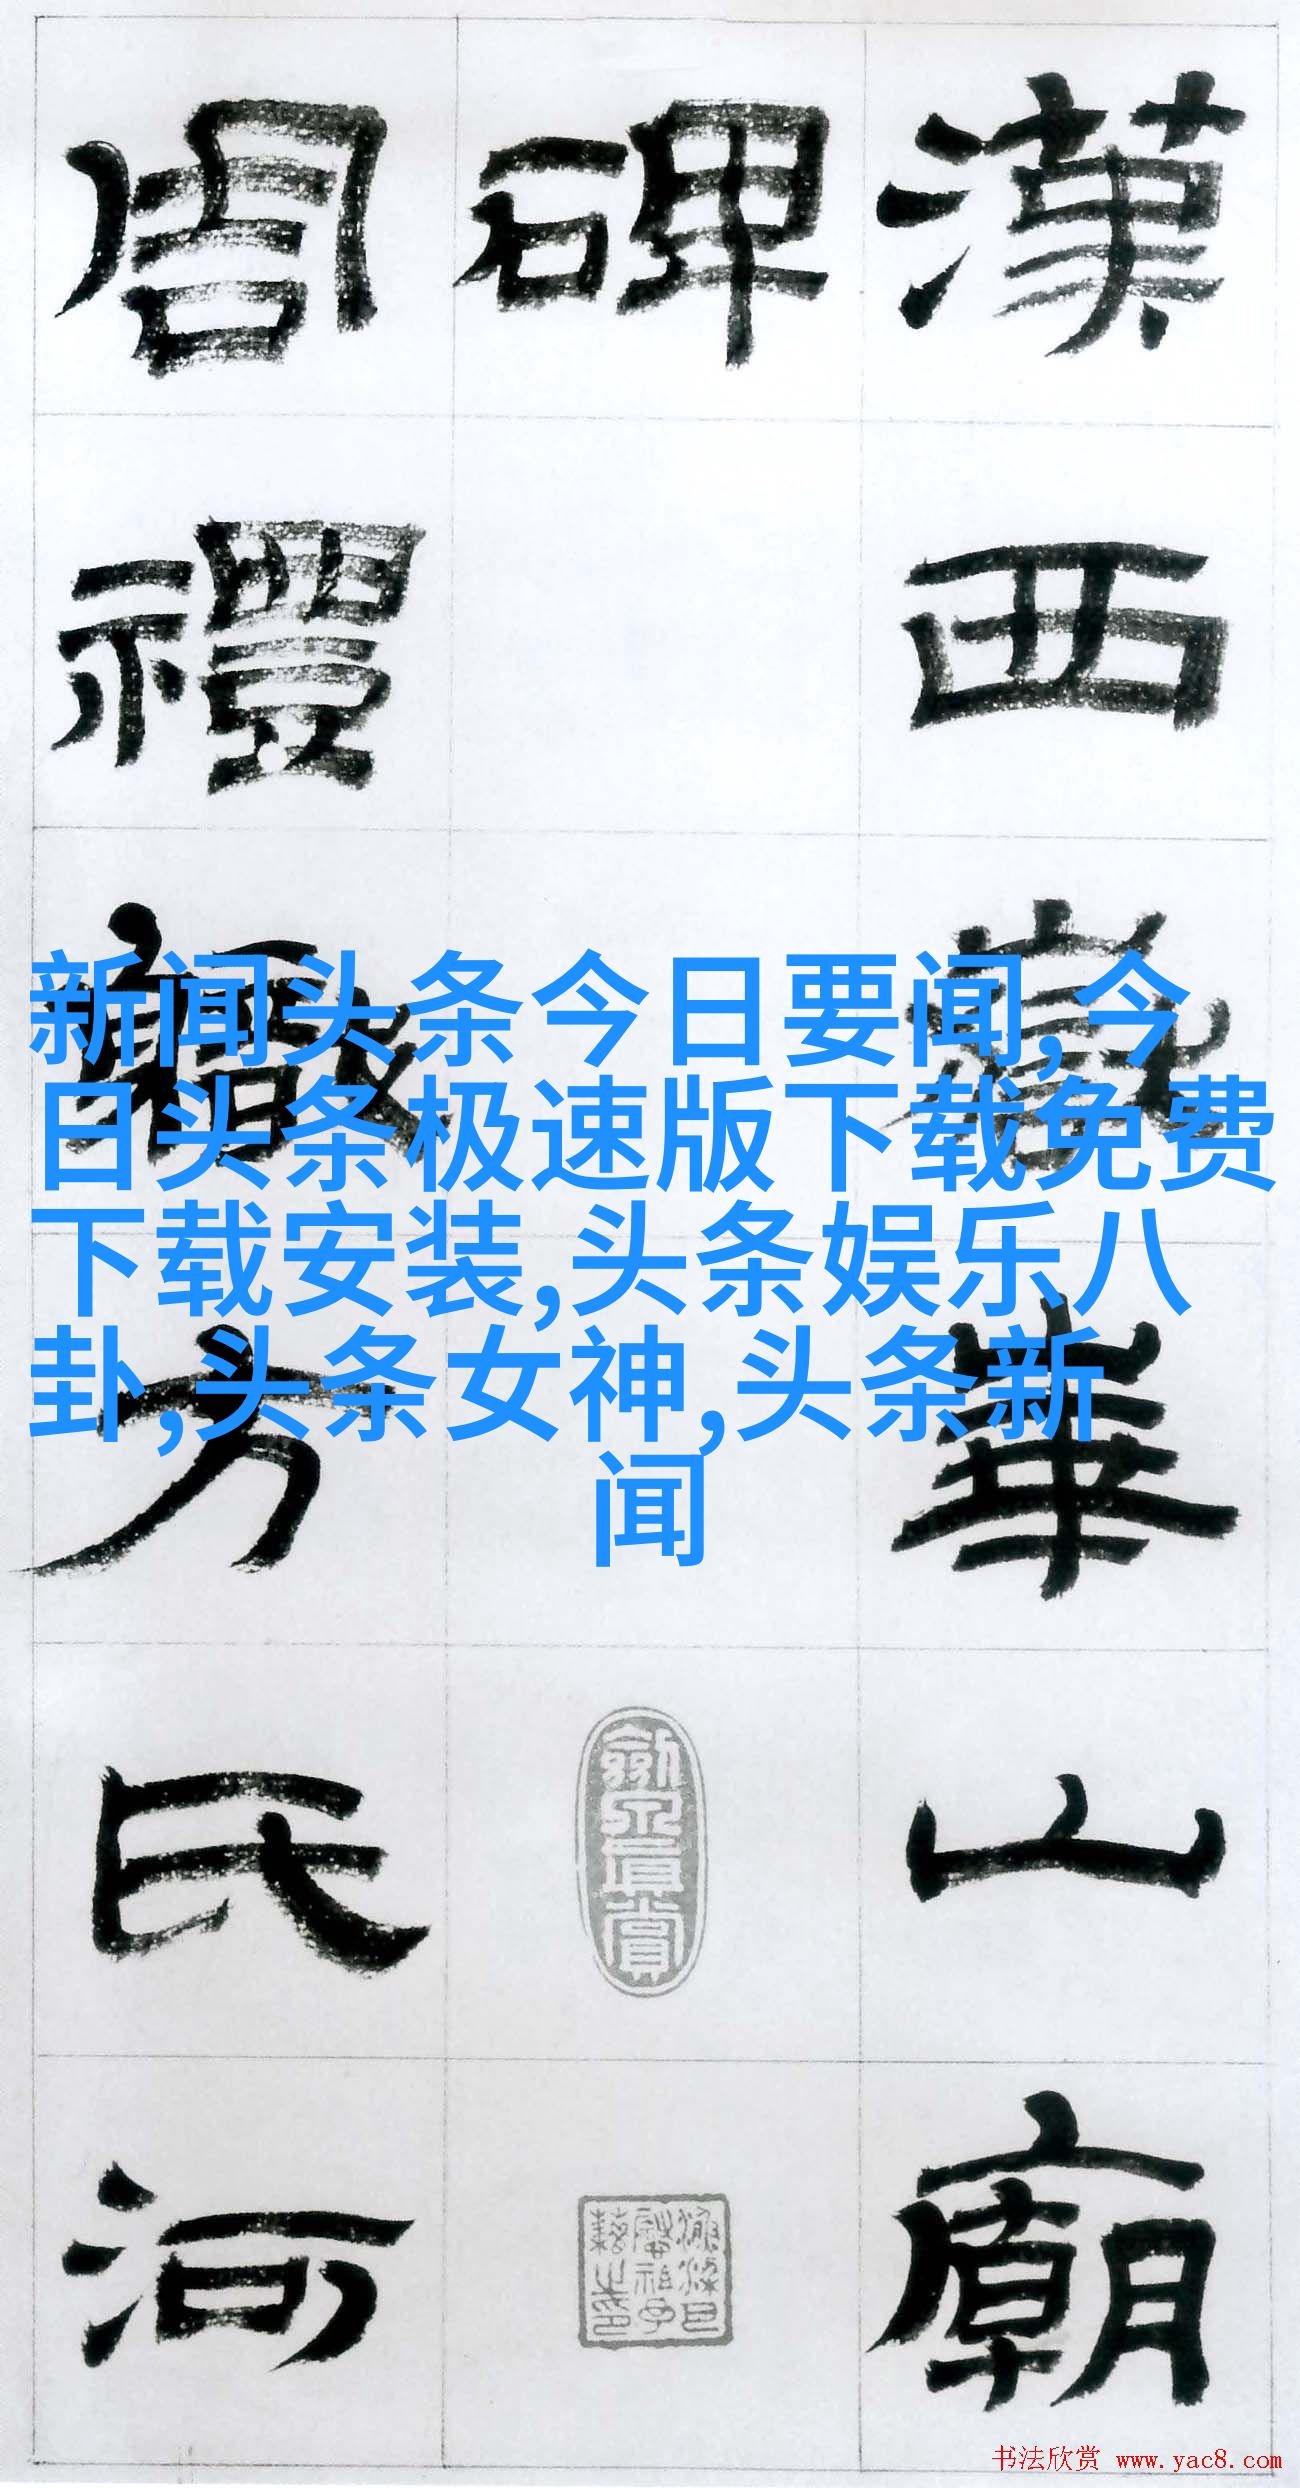 漢西嶽華山廟
碑
周禮職方氏河
新闻头条今日要闻,今
日头条极速版下载免费
下载安装,头条娱乐八
卦,头条女神,头条新
闻
书法欣赏 www.yac8.com